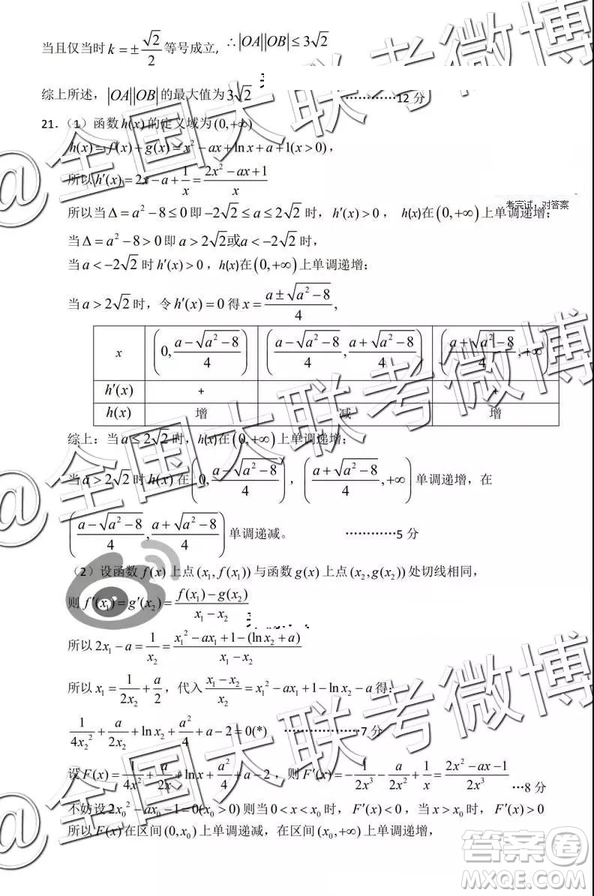 当且仅当时 k = ±√2/2 等号成立, ∴|OA||OB| ≤ 3√2
综上所述, |OA||OB| 的最大值为 3√2 …………12 分
21. (1) 函数 h(x) 的定义域为 (0,+∞)
h(x) = f(x) + g(x) = x² − ax + ln x + a + 1(x > 0),
所以 h′(x) = 2x − a + 1/x = (2x² − ax + 1)/x
所以当 Δ = a² − 8 ≤ 0 即 −2√2 ≤ a ≤ 2√2 时, h′(x) > 0, h(x)在 (0,+∞) 上单调递增;
考完试,对答案
当 Δ = a² − 8 > 0 即 a > 2√2 或 a < −2√2 时,
当 a < −2√2 时 h′(x) > 0, h(x)在 (0,+∞) 上单调递增;
当 a > 2√2 时, 令 h′(x) = 0 得 x = (a ± √(a² − 8))/4,
x (0, (a − √(a² − 8))/4) ((a − √(a² − 8))/4, (a + √(a² − 8))/4) ((a + √(a² − 8))/4, +∞)
h′(x) + - +
h(x) 增 减 增
综上: 当 a ≤ 2√2 时, h(x)在 (0,+∞) 上单调递增;
当 a > 2√2 时 h(x) 在 (0, (a − √(a² − 8))/4), ((a + √(a² − 8))/4, +∞) 单调递增, 在
((a − √(a² − 8))/4, (a + √(a² − 8))/4) 单调递减。 …………5 分
(2) 设函数 f(x) 上点 (x₁, f(x₁)) 与函数 g(x) 上点 (x₂, g(x₂)) 处切线相同,
则 f′(x₁) = g′(x₂) = (f(x₁) − g(x₂))/(x₁ − x₂)
所以 2x₁ − a = 1/x₂ = (x₁² − ax₁ + 1 − (ln x₂ + a))/(x₁ − x₂)
所以 x₁ = 1/(2x₂) + a/2, 代入 (x₁ − x₂)/x₂ = x₁² − ax₁ + 1 − ln x₂ − a 得:
1/(4x₂²) + a/(2x₂) + ln x₂ + a²/4 + a − 2 = 0(*) ………………7 分
设 F(x) = 1/(4x²) + a/(2x) + ln x + a²/4 + a − 2, 则 F′(x) = −1/(2x³) − a/(2x²) + 1/x = (2x² − ax − 1)/(2x³) …8 分
不妨设 2x₀² − ax₀ − 1 = 0(x₀ > 0) 则当 0 < x < x₀ 时, F′(x) < 0, 当 x > x₀ 时, F′(x) > 0
所以 F(x) 在区间 (0, x₀) 上单调递减, 在区间 (x₀, +∞) 上单调递增,
@全国大联考微博
@全国大联考微博
@全国大联考微博
答案圈
MXQE.COM